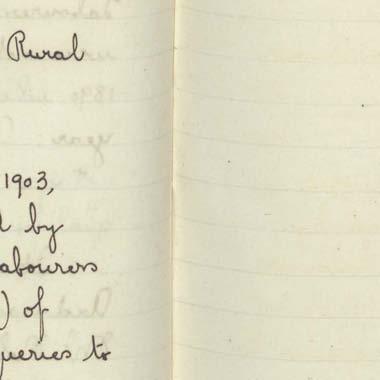 Rural
1903,
d by
abourers
) of
queries to